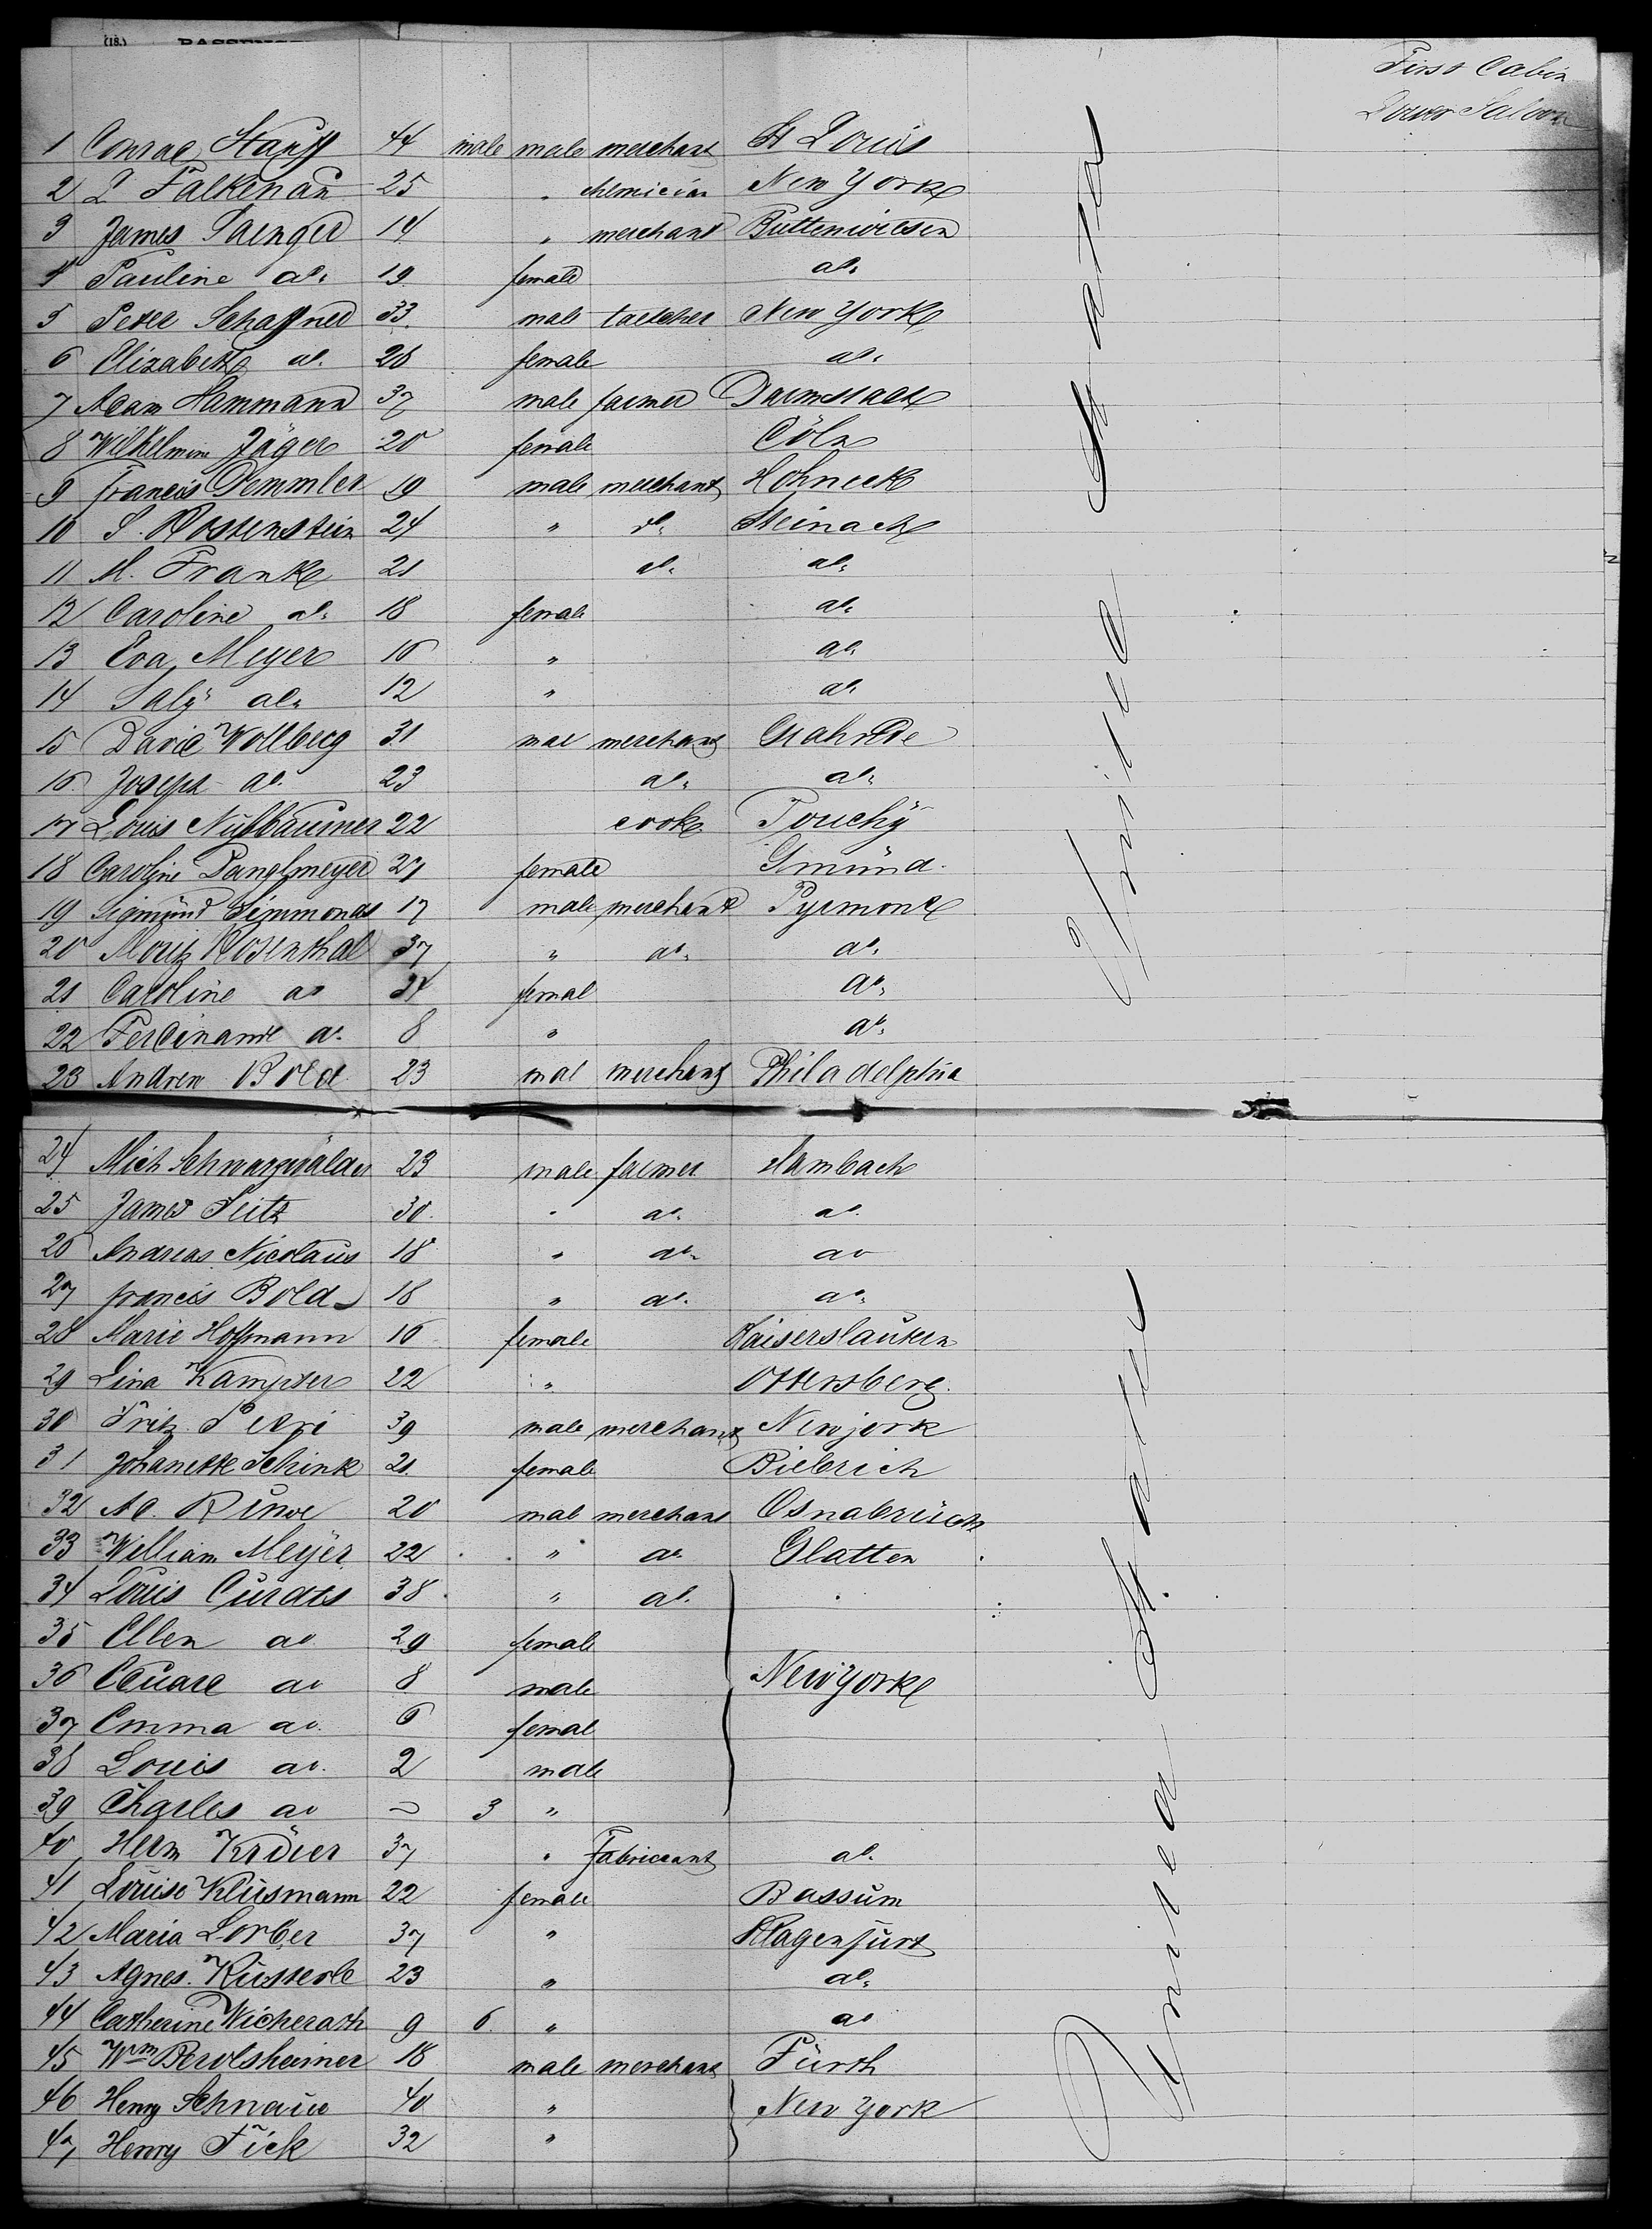 (18.) PASSENGE
First Cabin
Lower Saloon
1 Conrad Stauff 44 male male merchant St Louis
2 L Falkenau 25 " chemician New York
3 James Saenger 14 " merchant Buttenwiesen
4 Pauline do. 19 female do.
5 Peter Schaffner 33 male New York
6 Elizabeth do. 28 female do.
7 Adam Hammann 37 male farmer Darmstadt
8 Wilhelmine Jäger 20 female Cöln
9 Francis Demmler 19 male merchant Hohneck
10 S. Rosenstein 24 " do. Steinach
11 M. Frank 21 do. do.
12 Caroline do. 18 female do.
13 Eva Meyer 16 " do.
14 Saly do. 12 " do.
15 David Wollberg 31 mal merchant
16 Joseph do. 23 do. do.
17 Louis Nußbaumer 22 cook Touchy
18 Caroline Danglmeyer 21 female Gmünd.
19 Sigmund Simmonds 17 male merchant Pyrmont
20 Moritz Rosenthal 37 " do. do.
21 Caroline do 27 femal do.
22 Ferdinand do. 8 " do.
23 Andrew Bold 23 mal merchant Philadelphia
24 Mich Schwarzwälder 23 male farmer Hambach
25 James Seitz 30 " do. do.
26 Andreas Nicolaus 18 " do. do
27 francis Bold 18 " do. do.
28 Marie Hoffmann 16 female Kaiserslautern
29 Lina Kampter 22 " Ottersberg.
30 Fritz Petri 39 male merchant Newjork
31 Johanette Schink 21 female Biebrich
32 Ad. Ruwe 20 mal merchant Osnabrück
33 William Meyer 22 " do Glatten
34 Louis Curdts 38 " do.
35 Ellen do 29 female
36 Eduard do 8 male New York
37 Emma do. 6 femal
38 Louis do. 2 male
39 Charles do ~ 3 "
40 Herm Kröver 37 " Fabriccant do.
41 Louise Klusmann 22 female Bassum
42 Maria Lorber 37 " Klagenfurt
43 Agnes Kusserle 23 " do.
44 Catherine Wicherath 9 6 " do
45 Wm Berolsheimer 18 male merchant Fürth
46 Henry Schnaur 40 " New York
47 Henry Fick 32 "
United States
United States